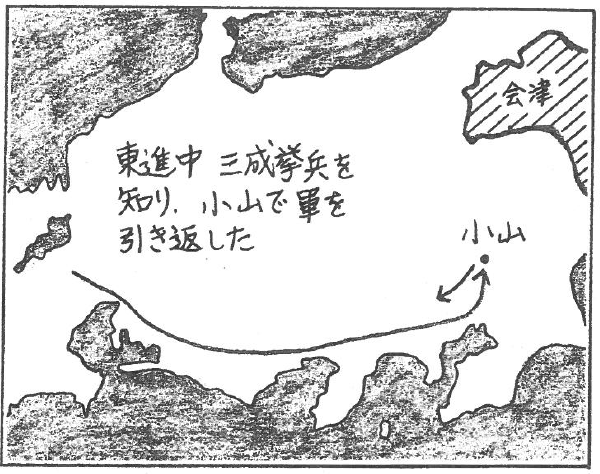 会津
東進中 三成挙兵を
知り、小山で軍を
引き返した
小山